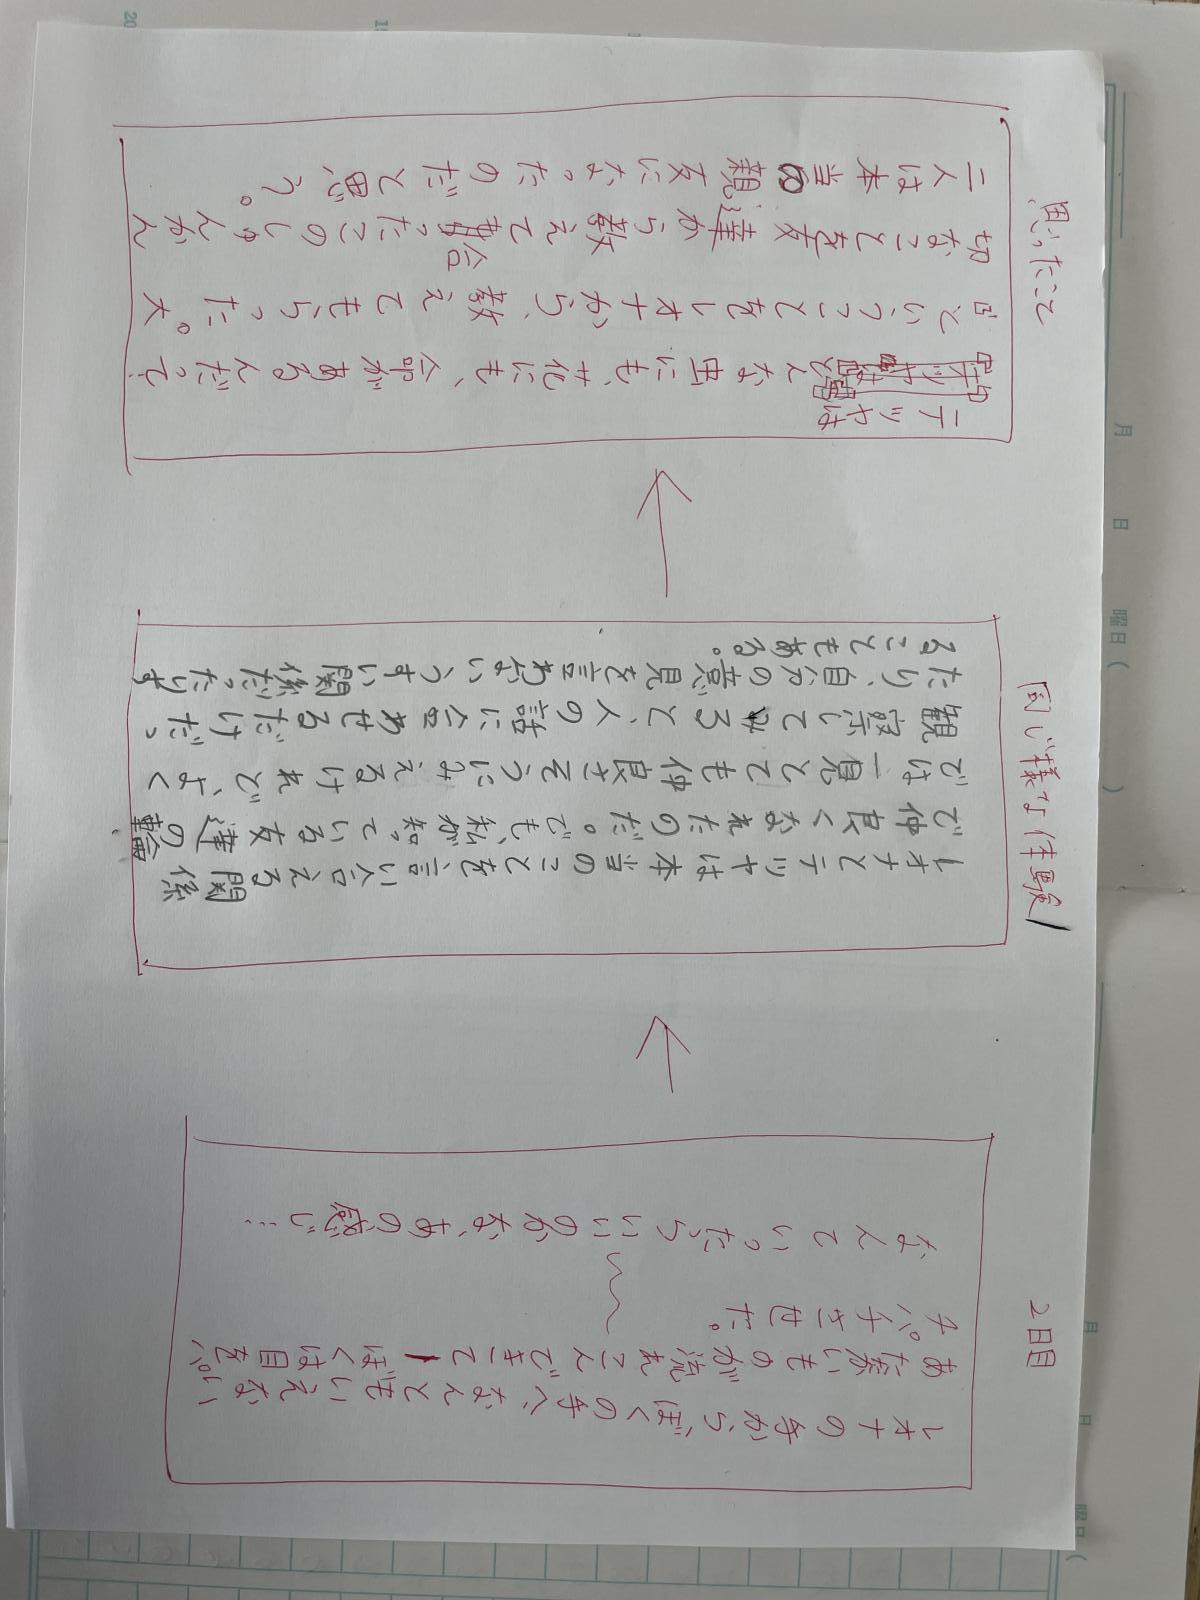 2日目
レオナの手からぼくの手へ、なんともいえない
あたたかいものが流れこんできてーぼくは目をパ
チパチさせた。
なんていったらいいのかな、あの感じ…
同じ様な体験
レオナとテツヤは本当のことを言い合える関係
で仲良くなれたのだ。でも、私が知っている友達の輪
では一見とても仲良さそうにみえるけれど、よく
観察してみると、人の話に合わせるだけだっ
たり、自分の意見を言わないうすい関係だったりす
ることもある。
思ったこと
テツヤは
どんな虫にも、花にも、命があるんだって
ということをレオナから、教えてもらった。大
切なことを友達から教えて貰ったこのしゅんかん
二人は本当の親友になったのだと思う。